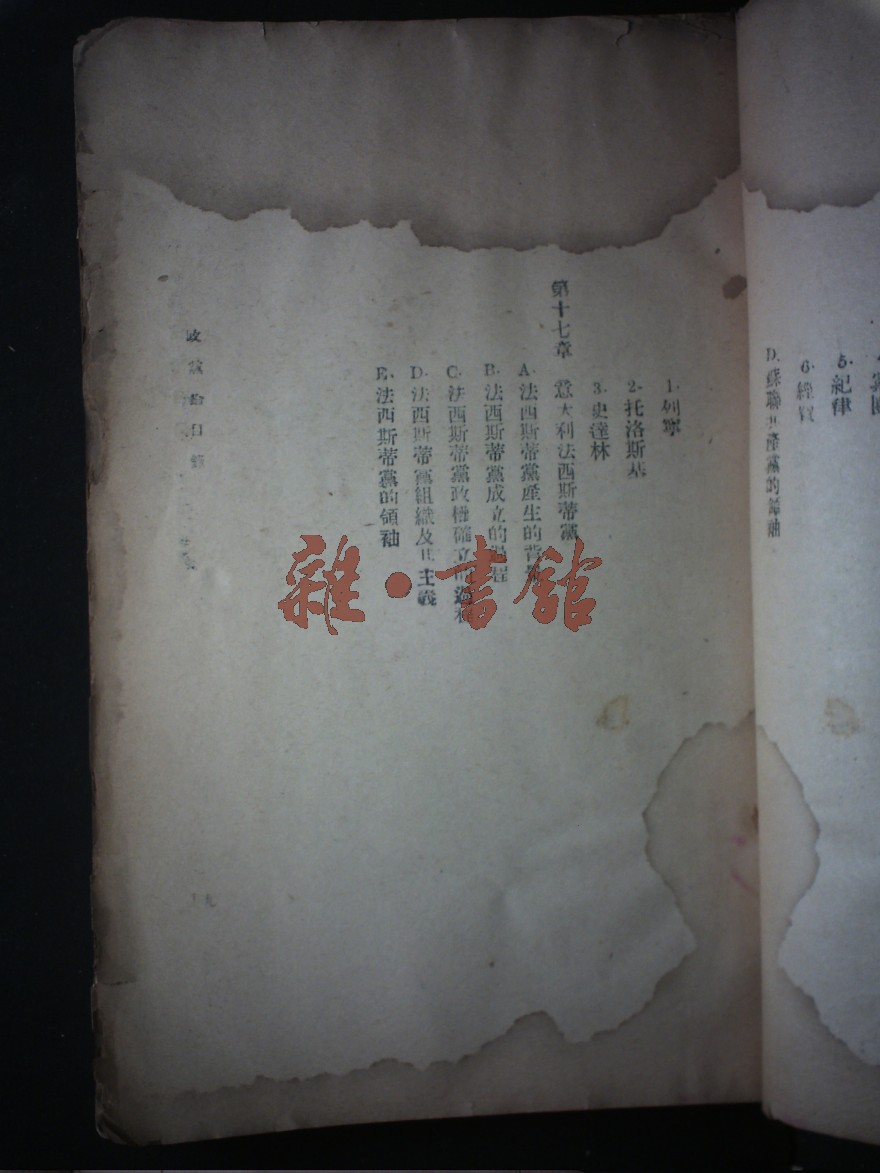 5. 紀律
6. 經費
D. 蘇聯共產黨的領袖
1. 列寧
2. 托洛斯基
3. 史達林
第十七章 意大利法西斯蒂黨
A. 法西斯蒂黨產生的背景
B. 法西斯蒂黨成立的過程
C. 法西斯蒂黨政權確立的過程
D. 法西斯蒂黨組織及其主義
E. 法西斯蒂黨的領袖
政黨論目錄
雜·書館